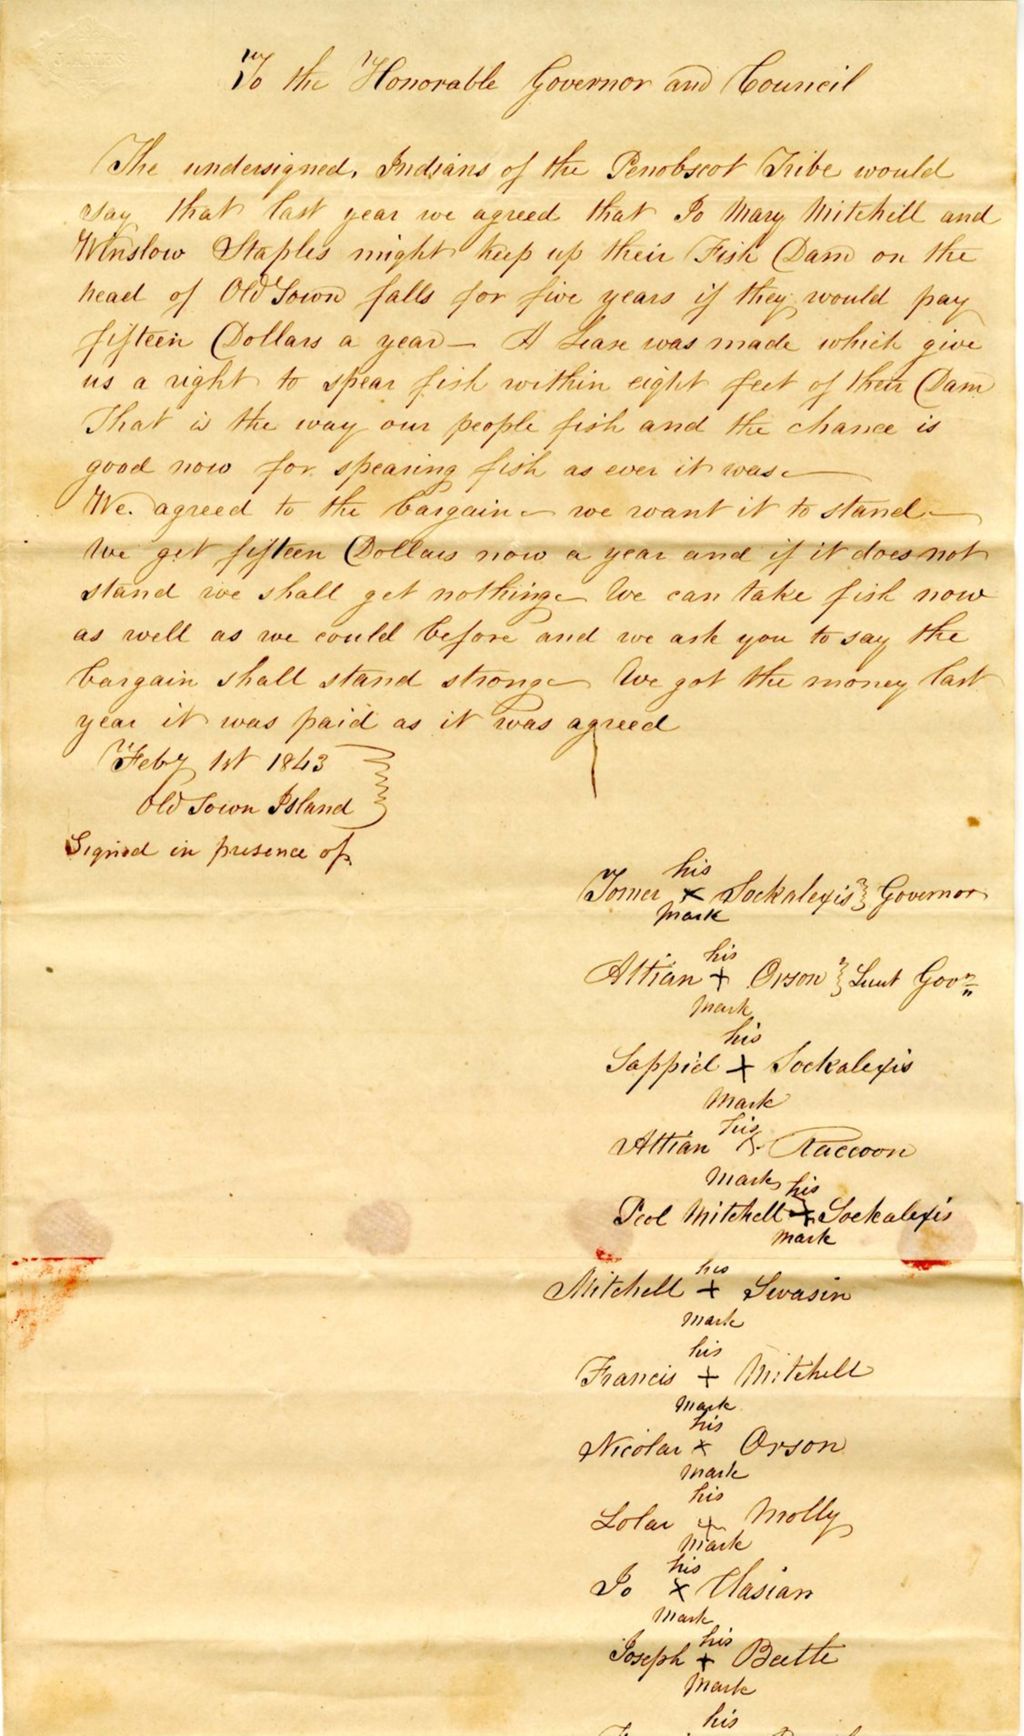 To the Honorable Governor and Council
The undersigned, Indians of the Penobscot Tribe would
say that last year we agreed that Jo Mary Mitchell and
Winslow Staples might keep up their Fish Dam on the
head of Old Town falls for five years if they would pay
fifteen Dollars a year — A Lease was made which give
us a right to spear fish within eight feet of their Dam
That is the way our people fish and the chance is
good now for spearing fish as ever it was —
We agreed to the bargain — we want it to stand —
We get fifteen Dollars now a year and if it does not
stand we shall get nothing — We can take fish now
as well as we could before and we ask you to say the
bargain shall stand strong — We got the money last
year it was paid as it was agreed
Feby 1st 1843
Old Town Island
Signed in presence of
his
Tomer x Sockalexis } Governor
mark
his
Attian + Orson } Lieut Govn
mark
his
Sappiel + Sockalexis
mark
his
Attian x Raccoon
mark
his
Peol Mitchell + Sockalexis
mark
his
Mitchell + Swasin
mark
his
Francis + Mitchell
mark
his
Nicolar x Orson
mark
his
Lolar + Molly
mark
his
Jo x
mark
his
Joseph + Beetle
mark
his